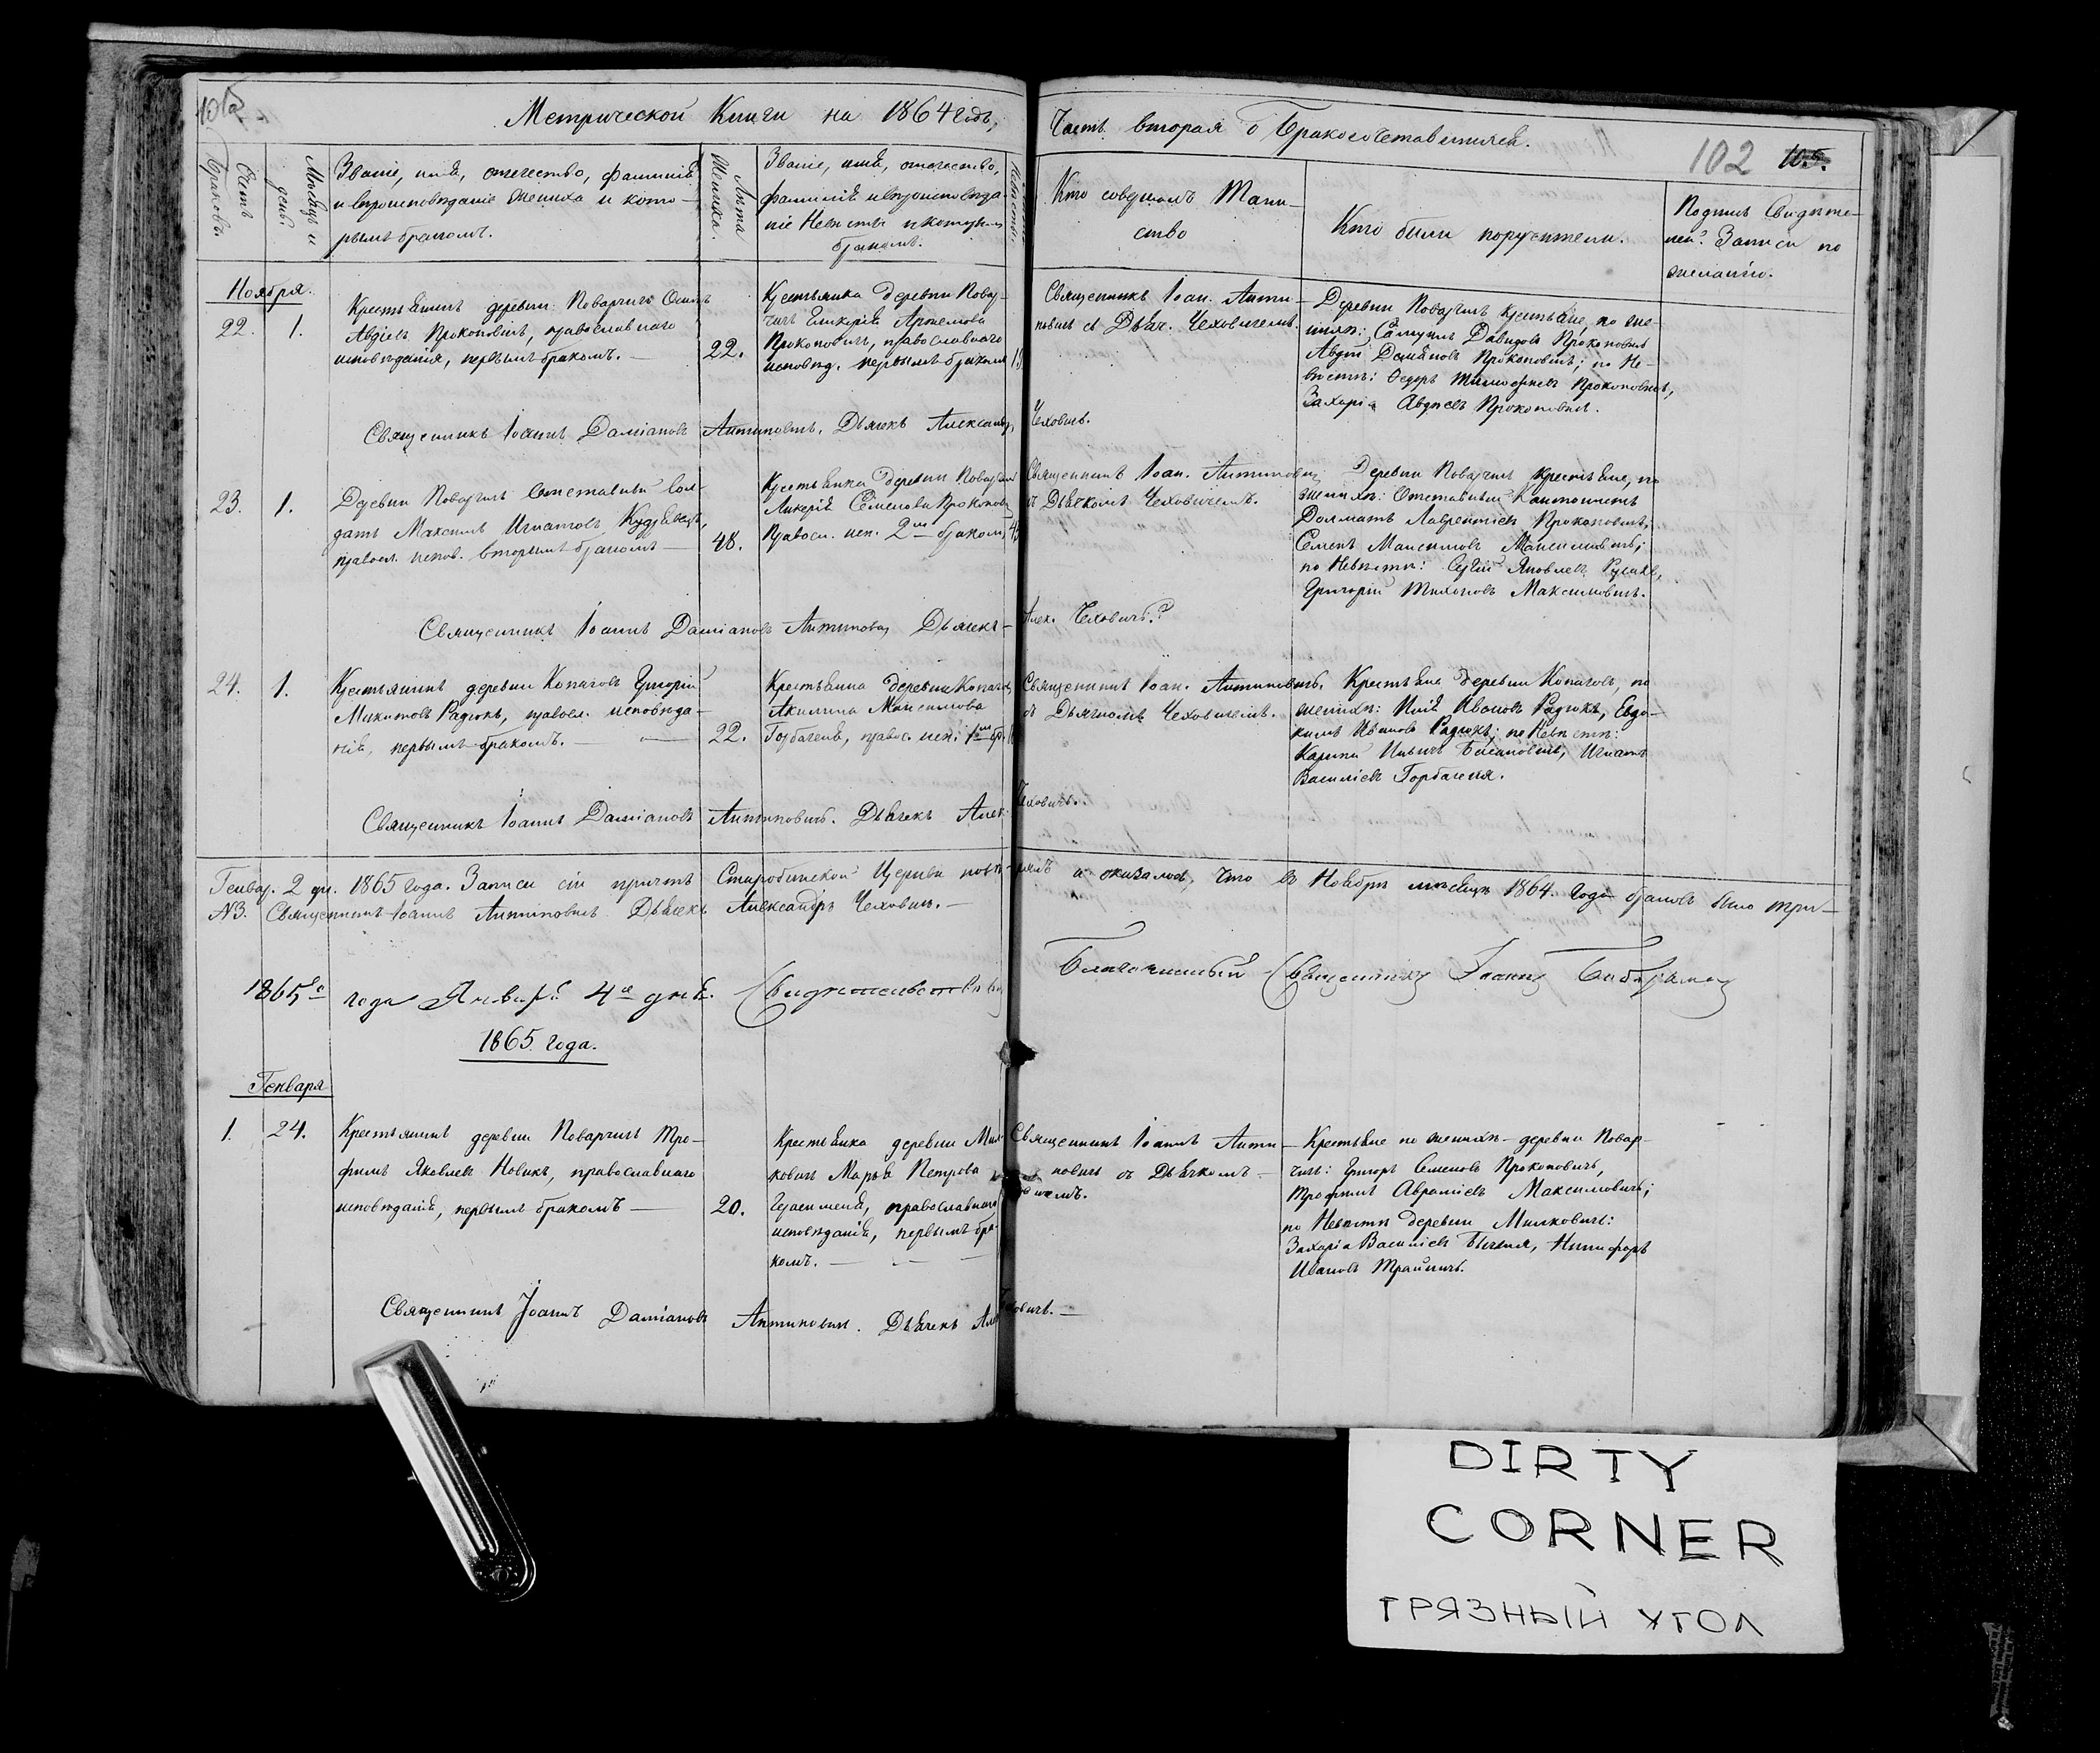 Метрической Книги на 1864 годъ,
Часть вторая о Бракосочетавшихся.
102
Счетъ Браковъ.
Мѣсяцъ и день.
Званіе, имя, отчество, фамилія
и вѣроисповѣданіе Жениха и кото-
рымъ бракомъ.
Лѣта Жениха.
Званіе, имя, отчество,
фамилія и вѣроисповѣда-
ніе Невѣсты и которымъ
бракомъ.
Кто совершалъ Таин-
ство
Кто были поручители.
Подпись Свидѣте-
лей Записи по
желанію.
Ноября.
22. 1.
Крестьянинъ деревни Поварчичъ Осипъ
Авдіевъ Прокоповичъ, православнаго
исповѣданія, первымъ бракомъ. —
22.
Крестьянка деревни Повар-
чичъ Гликерія Артемова
Прокоповичъ, православнаго
исповѣд. первымъ бракомъ
Священникъ Іоан. Анти-
повичъ съ Дьяч. Чеховичемъ.
Деревни Поварчичъ крестьяне, по же-
нихѣ: Самуилъ Давидовъ Прокоповичъ
Авдій Даміановъ Прокоповичъ; по Не-
вѣстѣ: Ѳедоръ Тимофеевъ Прокоповичъ,
Захарія Авдіевъ Прокоповичъ.
Священникъ Іоаннъ Даміановъ Антиповичъ. Дьячекъ Александръ Чеховичъ.
23. 1.
Деревни Поварчичъ Отставный Сол-
датъ Максимъ Игнатовъ Кудрявецъ,
правосл. испов. вторымъ бракомъ —
48.
Крестьянка деревни Поварчичъ
Лукерія Семенова Прокоповичъ
Правосл. исп. 2мъ бракомъ
Священникъ Іоан. Антиповичъ
съ Дьячкомъ Чеховичемъ.
Деревни Поварчичъ крестьяне, по
женихѣ: Отставный Кантонистъ
Долматъ Лаврентіевъ Прокоповичъ,
Семенъ Максимовъ Максимовичъ;
по Невѣстѣ: Сергій Яковлевъ Русакъ,
Григорій Тихоновъ Максимовичъ.
Священникъ Іоаннъ Даміановъ Антиповичъ Дьячекъ — Алек. Чеховичъ.
24. 1.
Крестьянинъ деревни Копачовъ Григорій
Микитовъ Радюкъ, правосл. исповѣда-
нія, первымъ бракомъ. —
22.
Крестьянка деревни Копачовъ
Акилина Максимова
Горбаченя, правос. исп. 1мъ бр.
Священникъ Іоан. Антиповичъ.
съ Дьячкомъ Чеховичемъ.
Крестьяне деревни Копачовъ, по
женихѣ: Илія Ивановъ Радюкъ, Евдо-
кимъ Ивановъ Радюкъ; по Невѣстѣ:
Игнатъ
Василіевъ Горбаченя.
Священникъ Іоаннъ Даміановъ Антиповичъ. Дьячекъ Алек. Чеховичъ.
Генвар. 2 дн. 1865 года. Записи сіи причтъ Старобинской Церкви повѣрялъ и оказалось, что въ Ноябрѣ мѣсяцѣ 1864. года браковъ было три —
№3. Священникъ Іоаннъ Антиповичъ. Дьячекъ Александръ Чеховичъ. —
1865го года Января 4го дня. Свидѣтельствовалъ Благочинный Священникъ Іоаннъ
1865. года.
Генваря
1. 24.
Крестьянинъ деревни Поварчичъ Тро-
фимъ Яковлевъ Новикъ, православнаго
исповѣданія, первымъ бракомъ —
20.
Крестьянка деревни Мил-
ковичъ Марья Петрова
Герасименя, православнаго
исповѣданія, первымъ бра-
комъ. —
Священникъ Іоаннъ Анти-
повичъ съ Дьячкомъ
Крестьяне по женихѣ — деревни Повар-
чичъ: Григорій Семеновъ Прокоповичъ,
Трофимъ Авраміевъ Максимовичъ;
по Невѣстѣ деревни Милковичъ:
Захарія Василіевъ Бычкня, Никифоръ
Ивановъ Трайничъ.
Священникъ Іоаннъ Даміановъ Антиповичъ. Дьячекъ Алек. Чеховичъ. —
DIRTY
CORNER
ГРЯЗНЫЙ УГОЛ